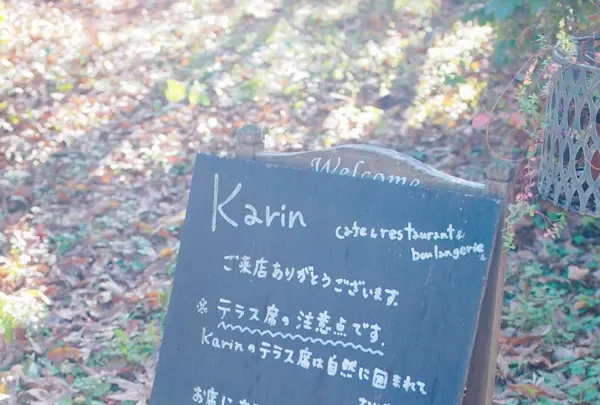 Welcome
Karin
cafe & restaurant &
boulangerie
ご来店ありがとうございます.
※ テラス席の注意点です.
Karinのテラス席は自然に囲まれて
お席に